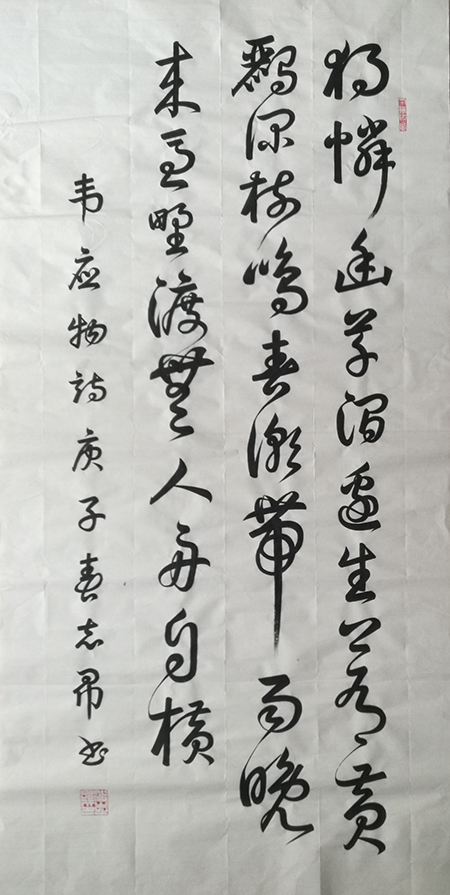 独憐幽草涧邊生上有黄
鸝深树鸣春潮帶雨晚
来急野渡無人舟自横
韦应物诗庚子春志昂书